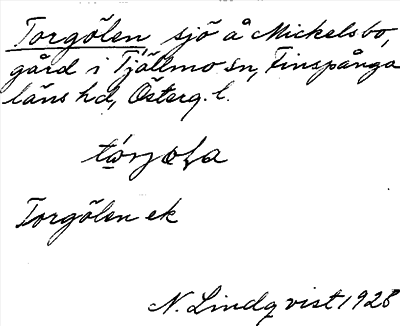 Torgölen sjö å Mickelsbo,
gård i Tjällmo sn, Finspånga
läns hd, Österg. l.
Torgölen ek
N. Lindqvist 1928